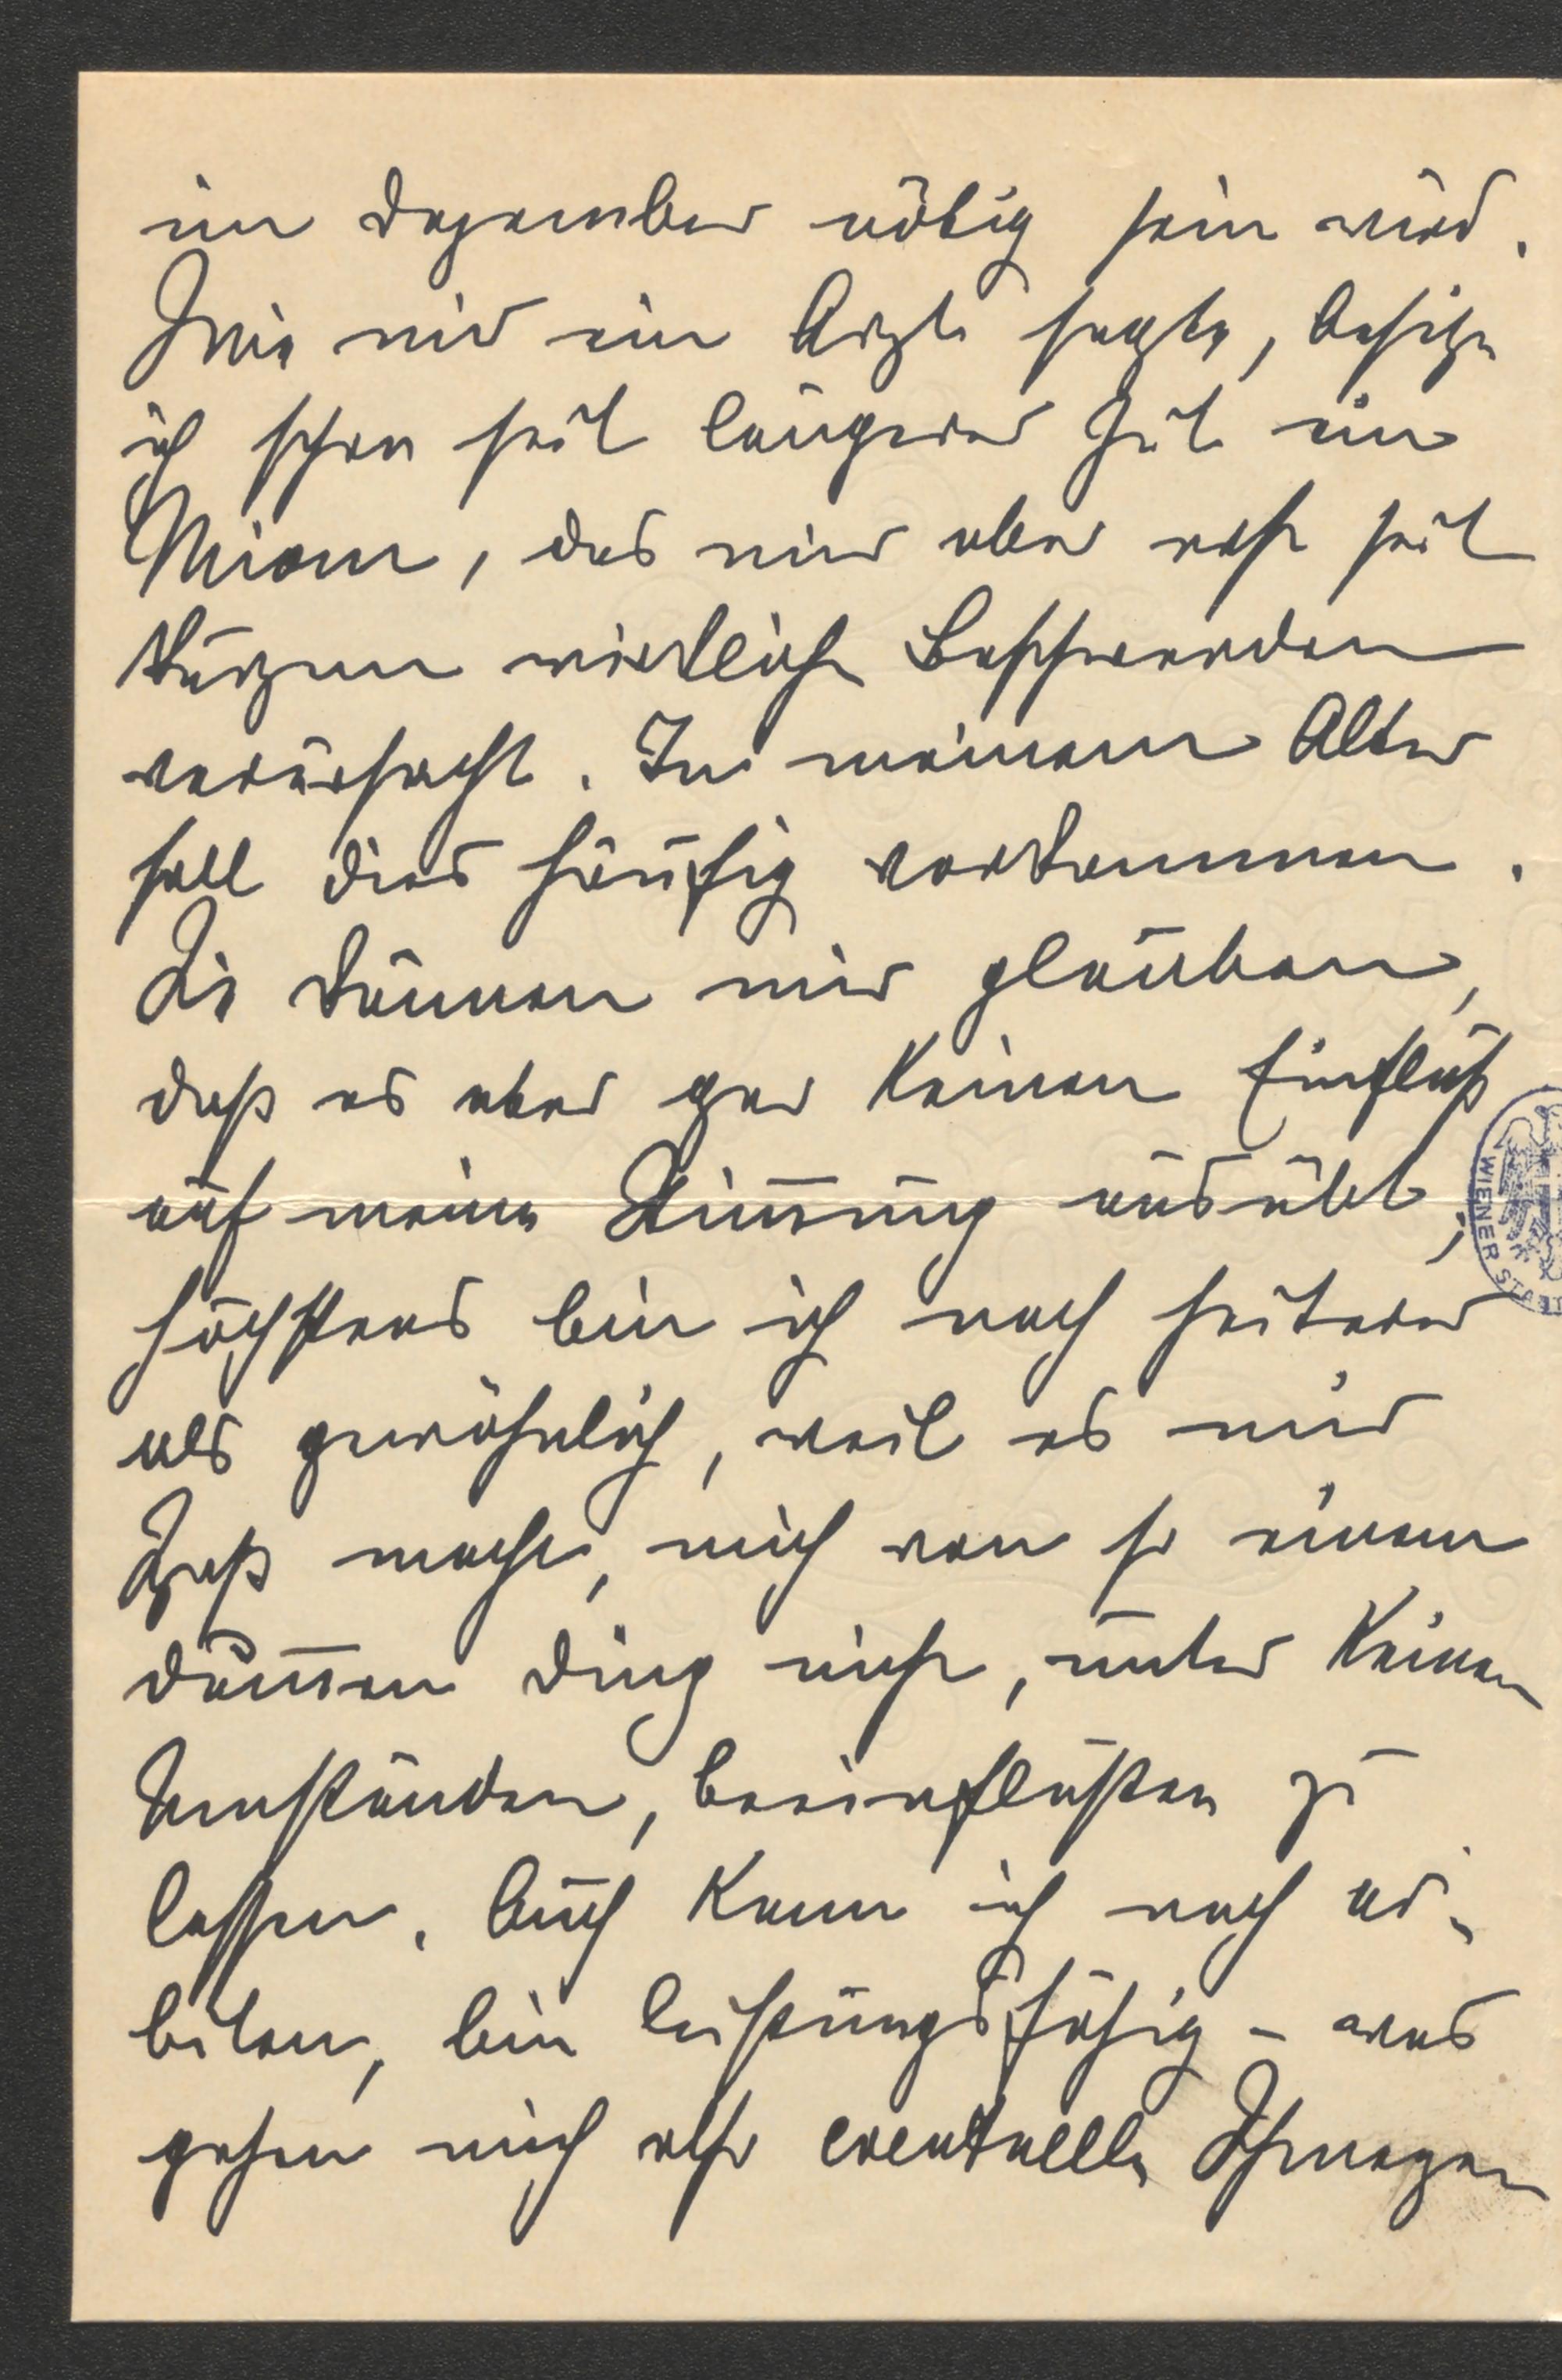 im Dezember nötig sein wird.
Wie mir ein Arzt sagte, besitze
ich schon seit längerer Zeit ein
Miom, das mir aber erst seit
kurzem wirkliche Beschwerden
verursacht. In meinem Alter
soll dies häufig vorkommen.
Sie können mir glauben,
daß es aber gar keinen Einfluß
auf meine Stimmung ausübt;
höchstens bin ich noch heiterer
als gewöhnlich, weil es mir
Spaß macht, mich von so einem
dummen Ding nicht, unter keinen
Umständen, beeinflußen zu
lassen. Auch kann ich noch ar-
beiten, bin leistungsfähig – was
gehen mich also eventuelle Schmerzen
WIENER STADT